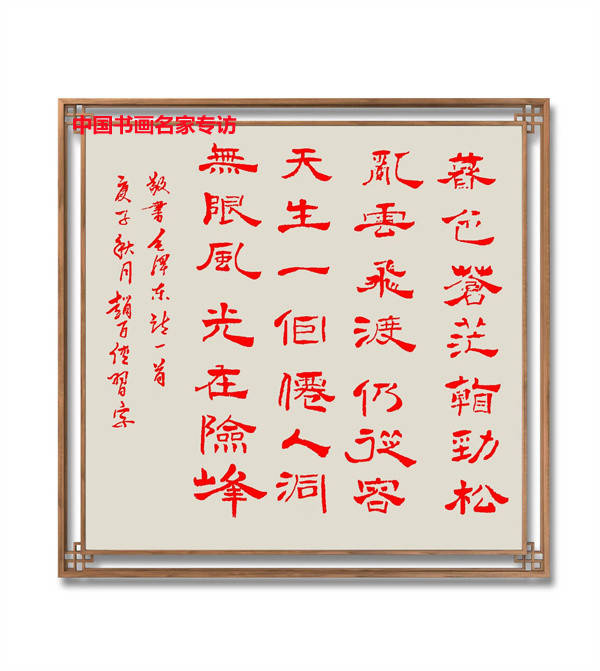 中国书画名家专访
暮色蒼茫看勁松
亂雲飛渡仍從容
天生一個僊人洞
無限風光在險峰
敬書毛澤東詩一首
庚子秋月趙百習字